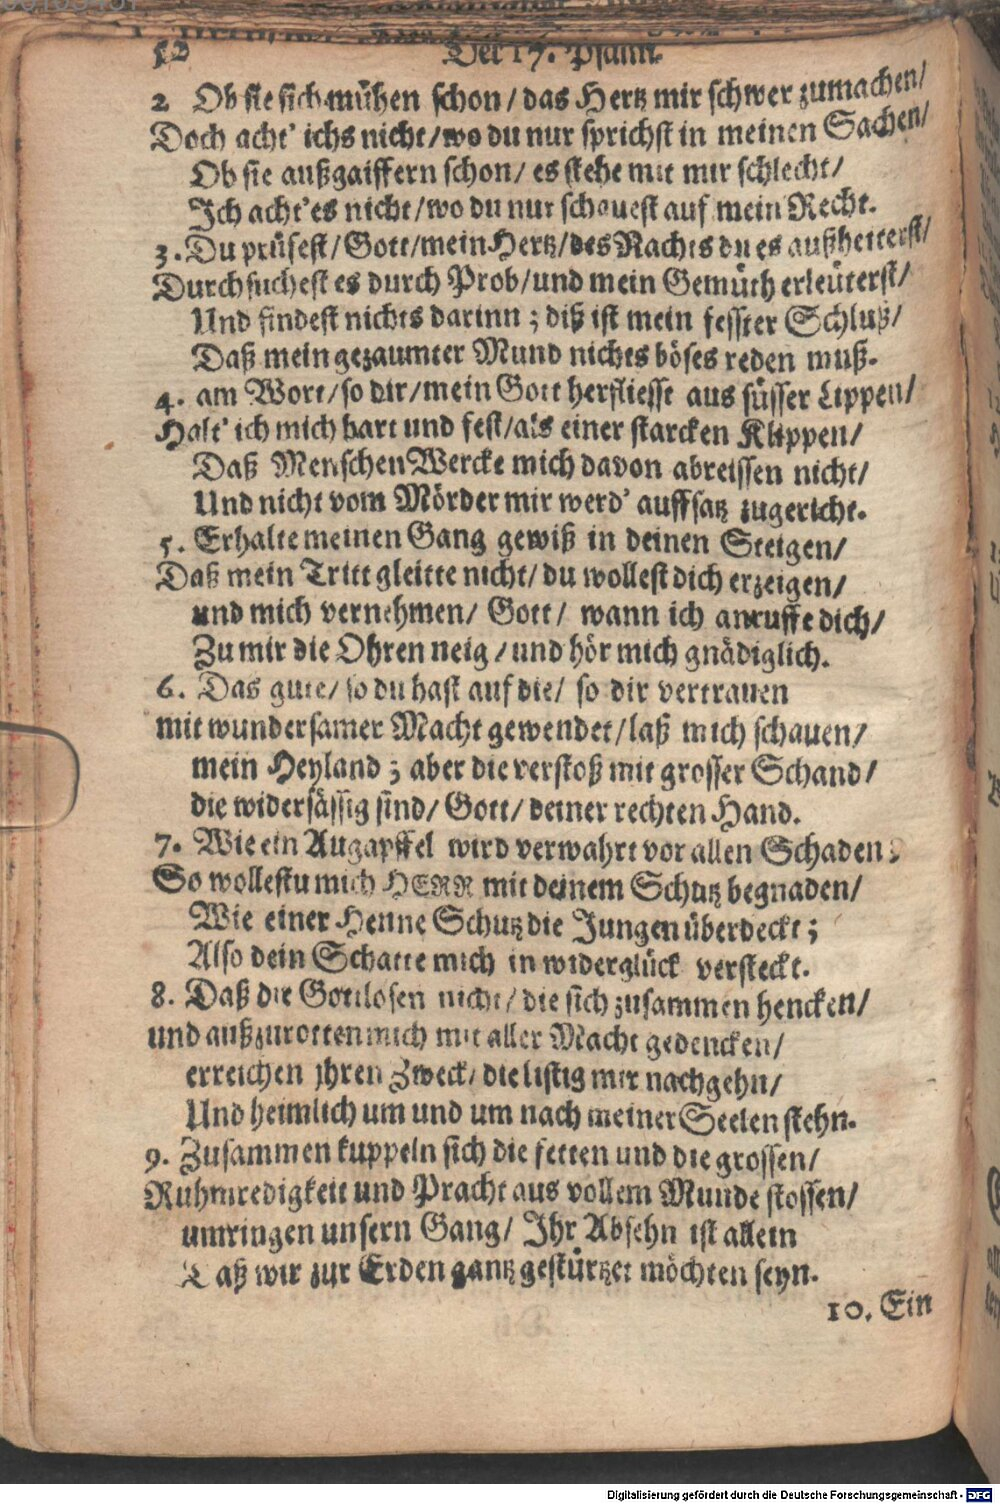 52 Der 17. Psalm.
2 Ob sie sich mühen schon / das Hertz mir schwer zumachen /
Doch acht' ichs nicht / wo du nur sprichst in meinen Sachen /
Ob sie außgaiffern schon / es stehe mit mir schlecht /
Ich acht' es nicht / wo du nur schauest auf mein Recht.
3. Du prüfest / Gott / mein Hertz / des Nachts du es außheiterst /
Durchsuchest es durch Prob / und mein Gemüth erleüterst /
Und findest nichts darinn ; diß ist mein fesster Schluß /
Daß mein gezaumter Mund nichts böses reden muß.
4. am Wort / so dir / mein Gott herfliesst aus süsser Lippen /
Halt' ich mich hart und fest / als einer starcken Klippen /
Daß Menschen Wercke mich davon abreissen nicht /
Und nicht vom Mörder mir werd' auffsatz zugericht.
5. Erhalte meinen Gang gewiß in deinen Steigen /
Daß mein Tritt gleitte nicht / du wollest dich erzeigen /
und mich vernehmen / Gott / wann ich anruffe dich /
Zu mir die Ohren neig / und hör mich gnädiglich.
6. Das gute / so du hast auf die / so dir vertrauen
mit wundersamer Macht gewendet / laß mich schauen /
mein Heyland ; aber die verstoß mit grosser Schand /
die widersässig sind / Gott / deiner rechten Hand.
7. Wie ein Augapffel wird verwahrt vor allen Schaden :
So wollestu mich HERR mit deinem Schutz begnaden /
Wie einer Henne Schutz die Jungen überdeckt ;
Also dein Schatte mich in widerglück versteckt.
8. Daß die Gottlosen nicht / die sich zusammen hencken /
und außzurotten mich mit aller Macht gedencken /
erreichen jhren Zweck / die listig mir nachgehn /
Und heimlich um und um nach meiner Seelen stehn.
9. Zusammen kuppeln sich die fetten und die grossen /
Ruhmredigkeit und Pracht aus vollem Munde stossen /
umringen unsern Gang / Ihr Absehn ist allein
Daß wir zur Erden gantz gestürtzet möchten seyn.
10. Ein
Digitalisierung gefördert durch die Deutsche Forschungsgemeinschaft - DFG